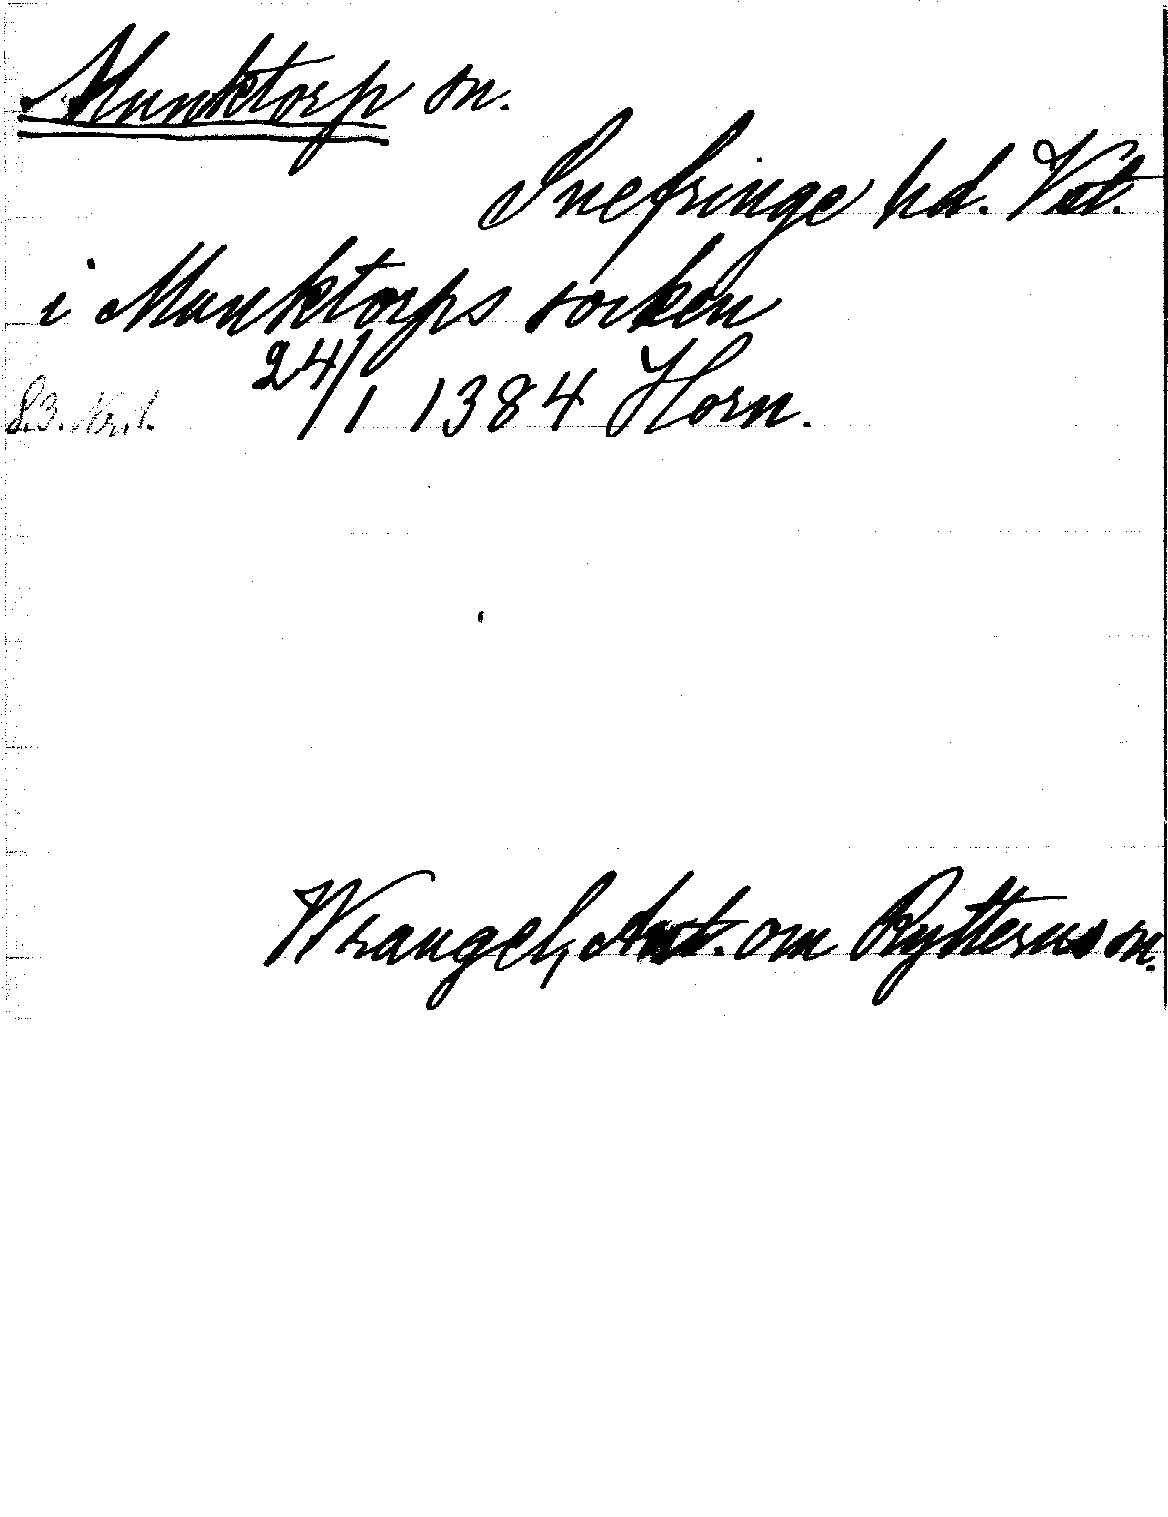 Munktorp sn.
Snefringe hd. Vstl.
i Munktorps socken
24/1 1384 Horn.
S.3. Nr. 1.
Wrangel, Ant. om Rytterns sn.